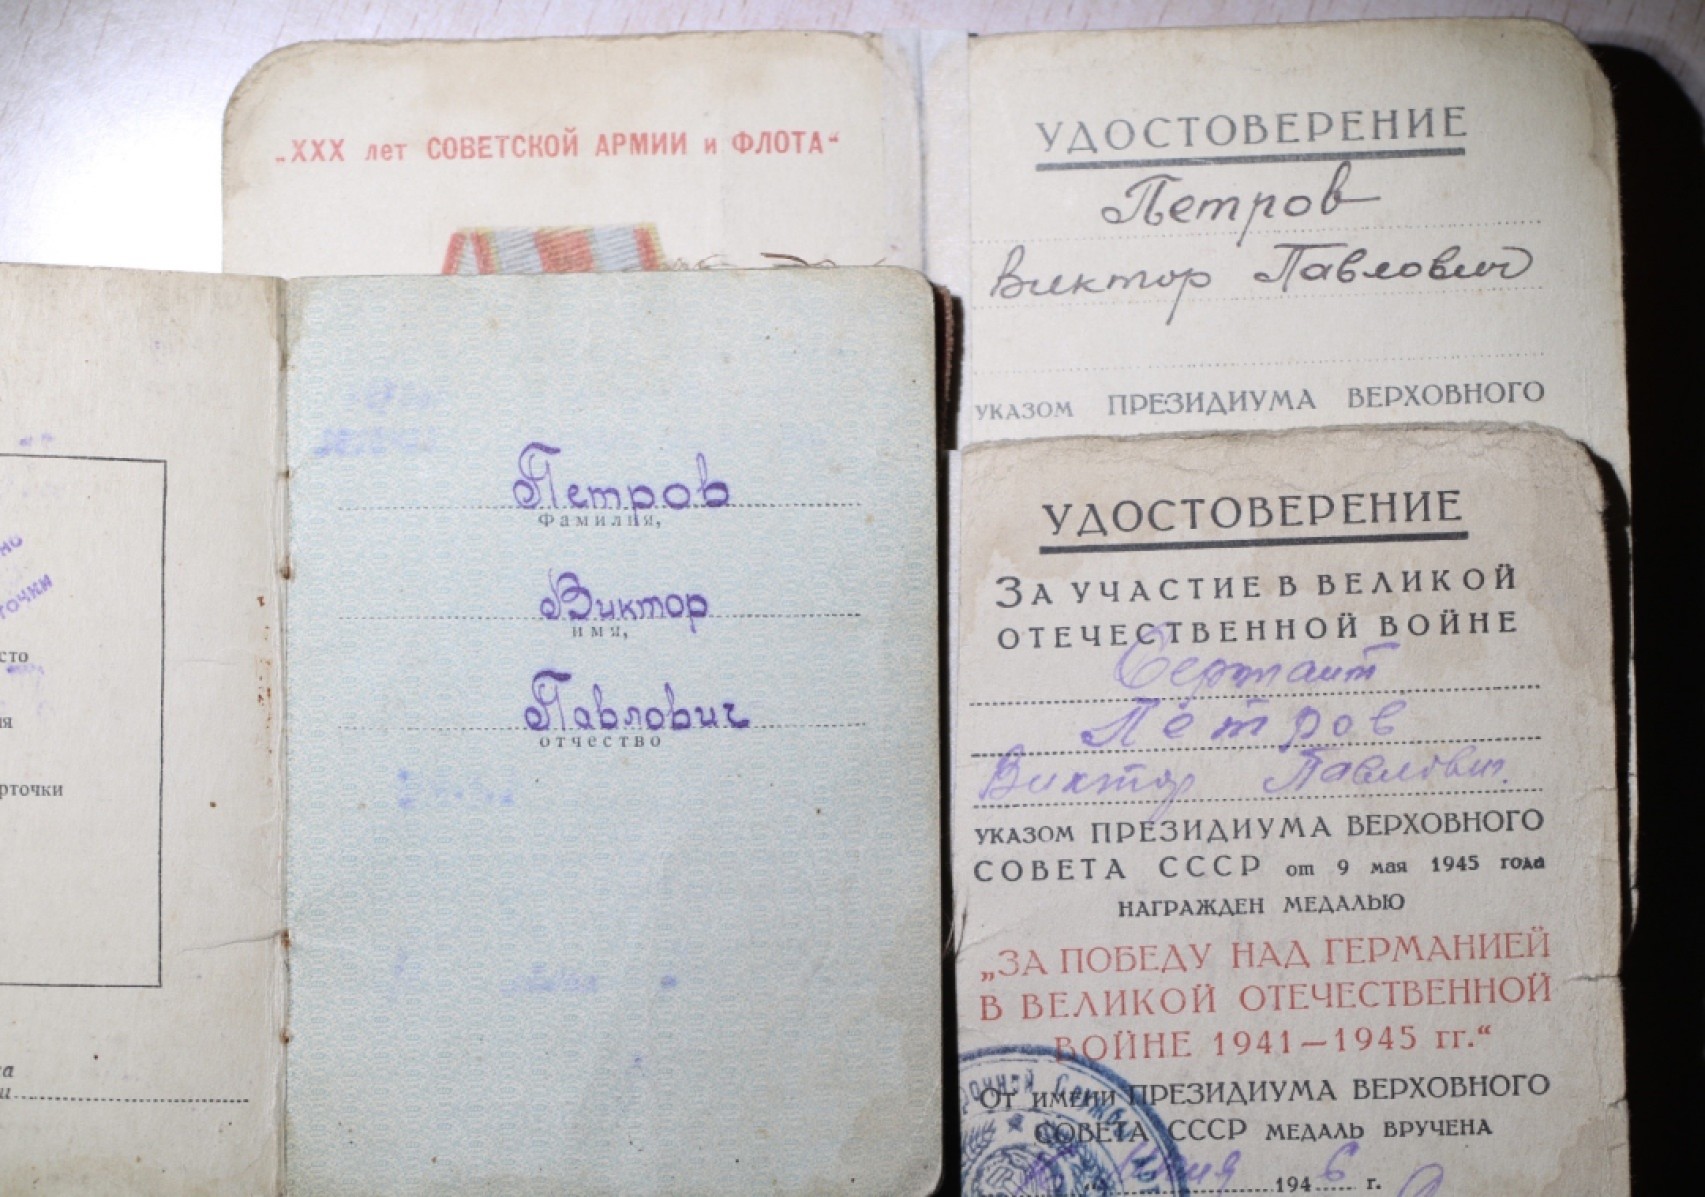 „XXX лет СОВЕТСКОЙ АРМИИ и ФЛОТА“
УДОСТОВЕРЕНИЕ
Петров
Виктор Павлович
УКАЗОМ ПРЕЗИДИУМА ВЕРХОВНОГО
сто
ия
рточки
Петров
Фамилия,
Виктор
имя,
Павлович
отчество
УДОСТОВЕРЕНИЕ
ЗА УЧАСТИЕ В ВЕЛИКОЙ
ОТЕЧЕСТВЕННОЙ ВОЙНЕ
Сержант
Петров
Виктор Павлович
УКАЗОМ ПРЕЗИДИУМА ВЕРХОВНОГО
СОВЕТА СССР от 9 мая 1945 года
НАГРАЖДЕН МЕДАЛЬЮ
„ЗА ПОБЕДУ НАД ГЕРМАНИЕЙ
В ВЕЛИКОЙ ОТЕЧЕСТВЕННОЙ
ВОЙНЕ 1941—1945 гг.“
ОТ ИМЕНИ ПРЕЗИДИУМА ВЕРХОВНОГО
СОВЕТА СССР МЕДАЛЬ ВРУЧЕНА
1946 г.